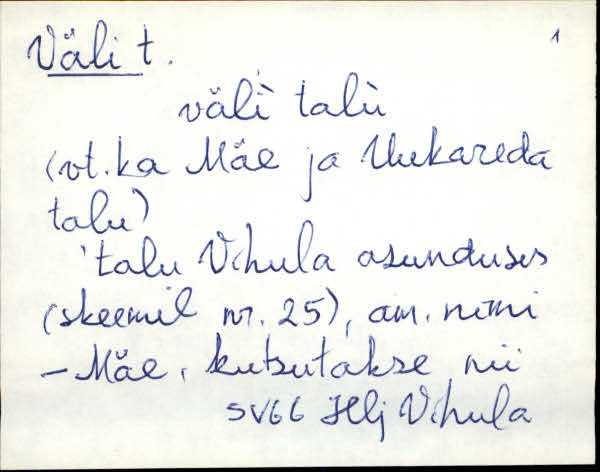 Väli t. 1
väl̀i tal̀u
(vt. ka Mäe ja Uukareda
talu)
'talu Vihula asunduses
(skeemil nr. 25), am. nimi
– Mäe, kutsutakse nii
SV66 Hlj Vihula